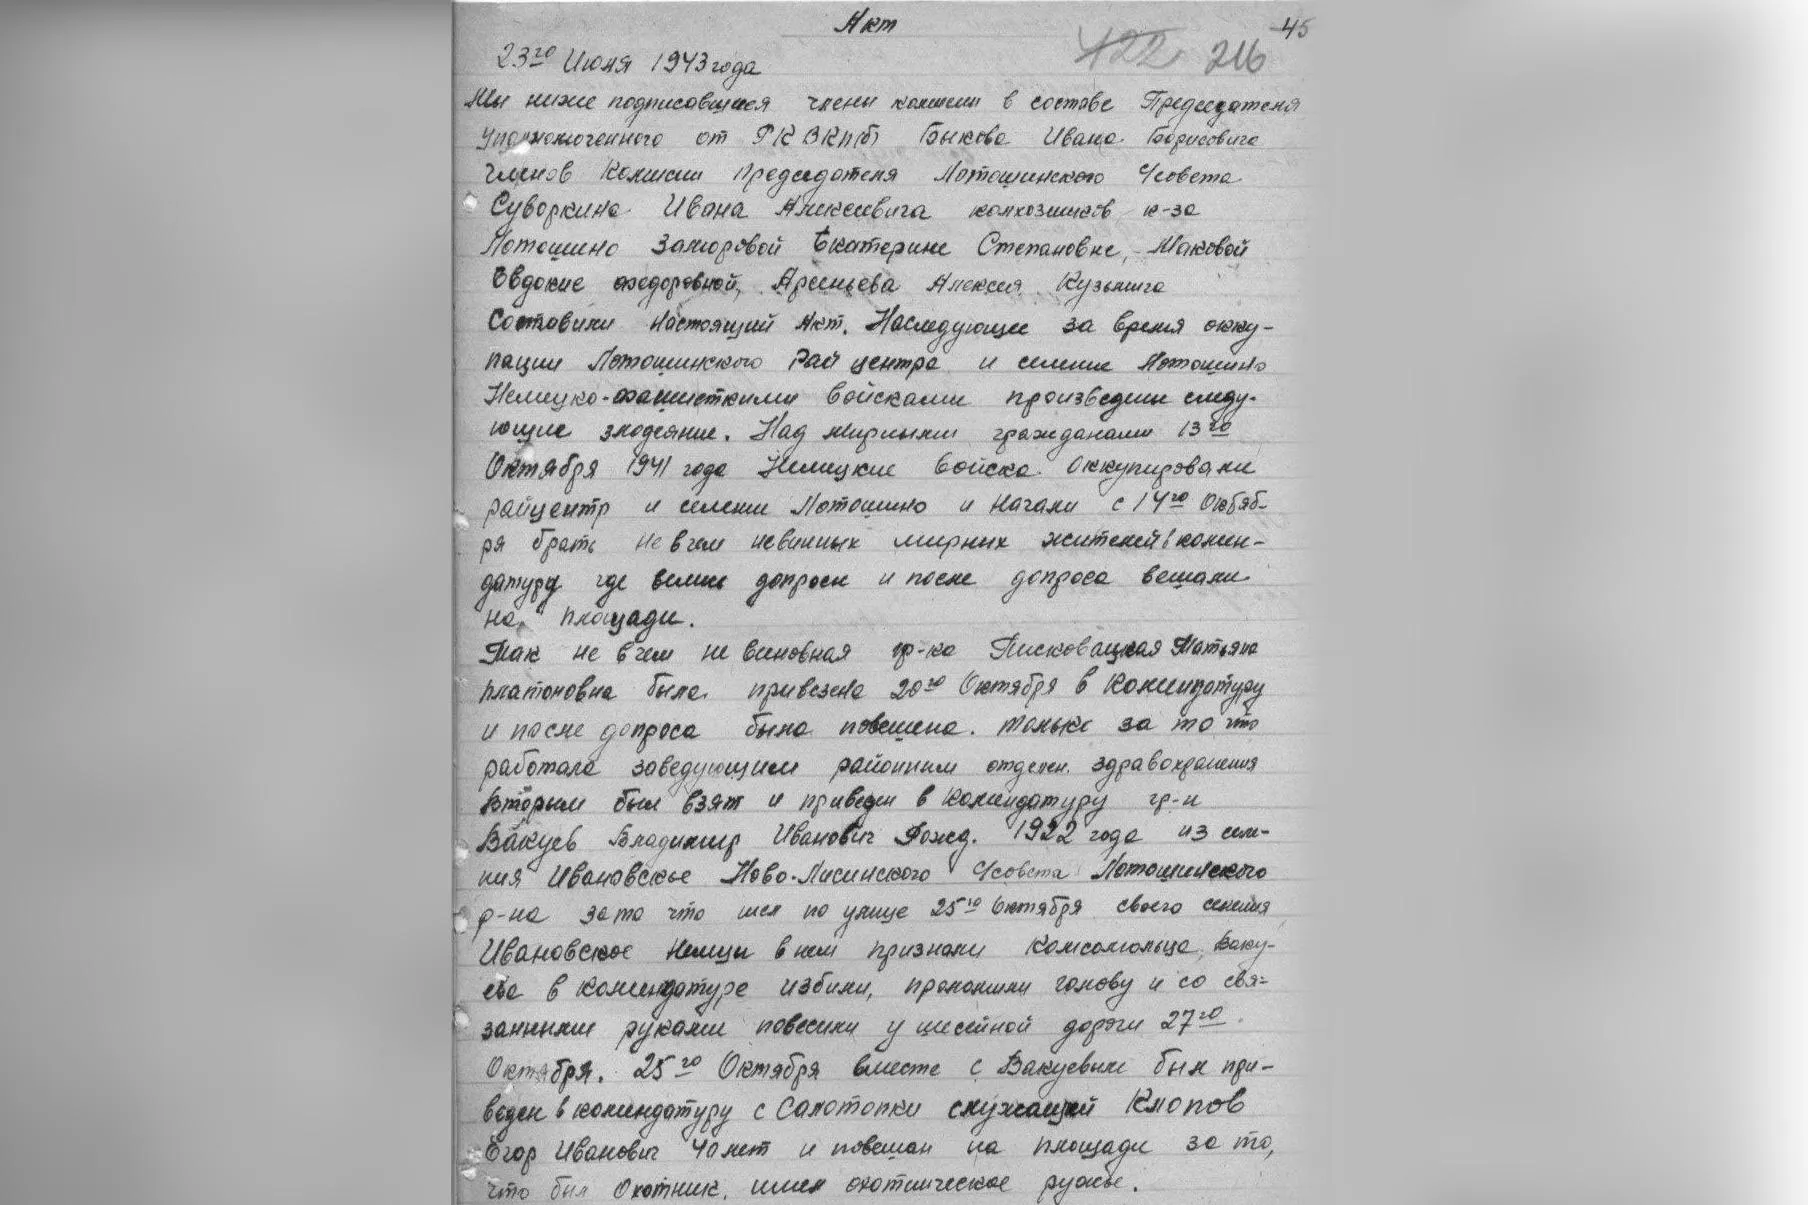 Акт
45
422 216
23го Июня 1943 года
Мы ниже подписавшиеся члены комисии в составе Председателя
Уполномоченного от РК ВКП(б) Быкова Ивана Борисовича
Членов Комисии председателя Лотошинского Ч/совета
Суворкина Ивана Алексеевича колхозников к-за
Лотошино Екатерине Степановне, Маковой
Евдокие Федоровной, Арсеньева Алексея Кузьмича
Составили настоящий Акт. Наследующее за время окку-
пации Лотошинского Рай центра и селение Лотошино
Немецко-фашисткими войсками произведены следу-
ющие злодеяние. Над мирными гражданами 13го
Октября 1941 года Немецкие войска Оккупировали
райцентр и селение Лотошино и Начали с 14го Октяб-
ря брать не в чем невинных мирных жителей в комен-
датуру где вели допросы и после допроса вешали
на площади.
Так не в чем не виновная гр-ка Писковацкая Татьяна
Платоновна была привезена 20го Октября в Комендатуру
и после допроса была повешена. только за то что
работала заведующим районным отделен. здравохранения
Вторым был взят и приведен в Комендатуру гр-н
Вакуев Владимир Иванович Рожд. 1922 года из селе-
ния Ивановское Ново-Лисинского Ч/совета Лотошинского
р-на за то что шел по улице 25го Октября своего селения
Ивановское Немцы в нем признали Комсомольца, Ваку-
ева в комендатуре избили, проломили голову и со свя-
занными руками повесили у шесейной дороги 27го
Октября. 25го Октября вместе с Вакуевым был при-
веден в комендатуру с Салотопки служащий Клопов
Егор Иванович 40 лет и повешан на площади за то,
что был Охотник, имел охотническое ружье.